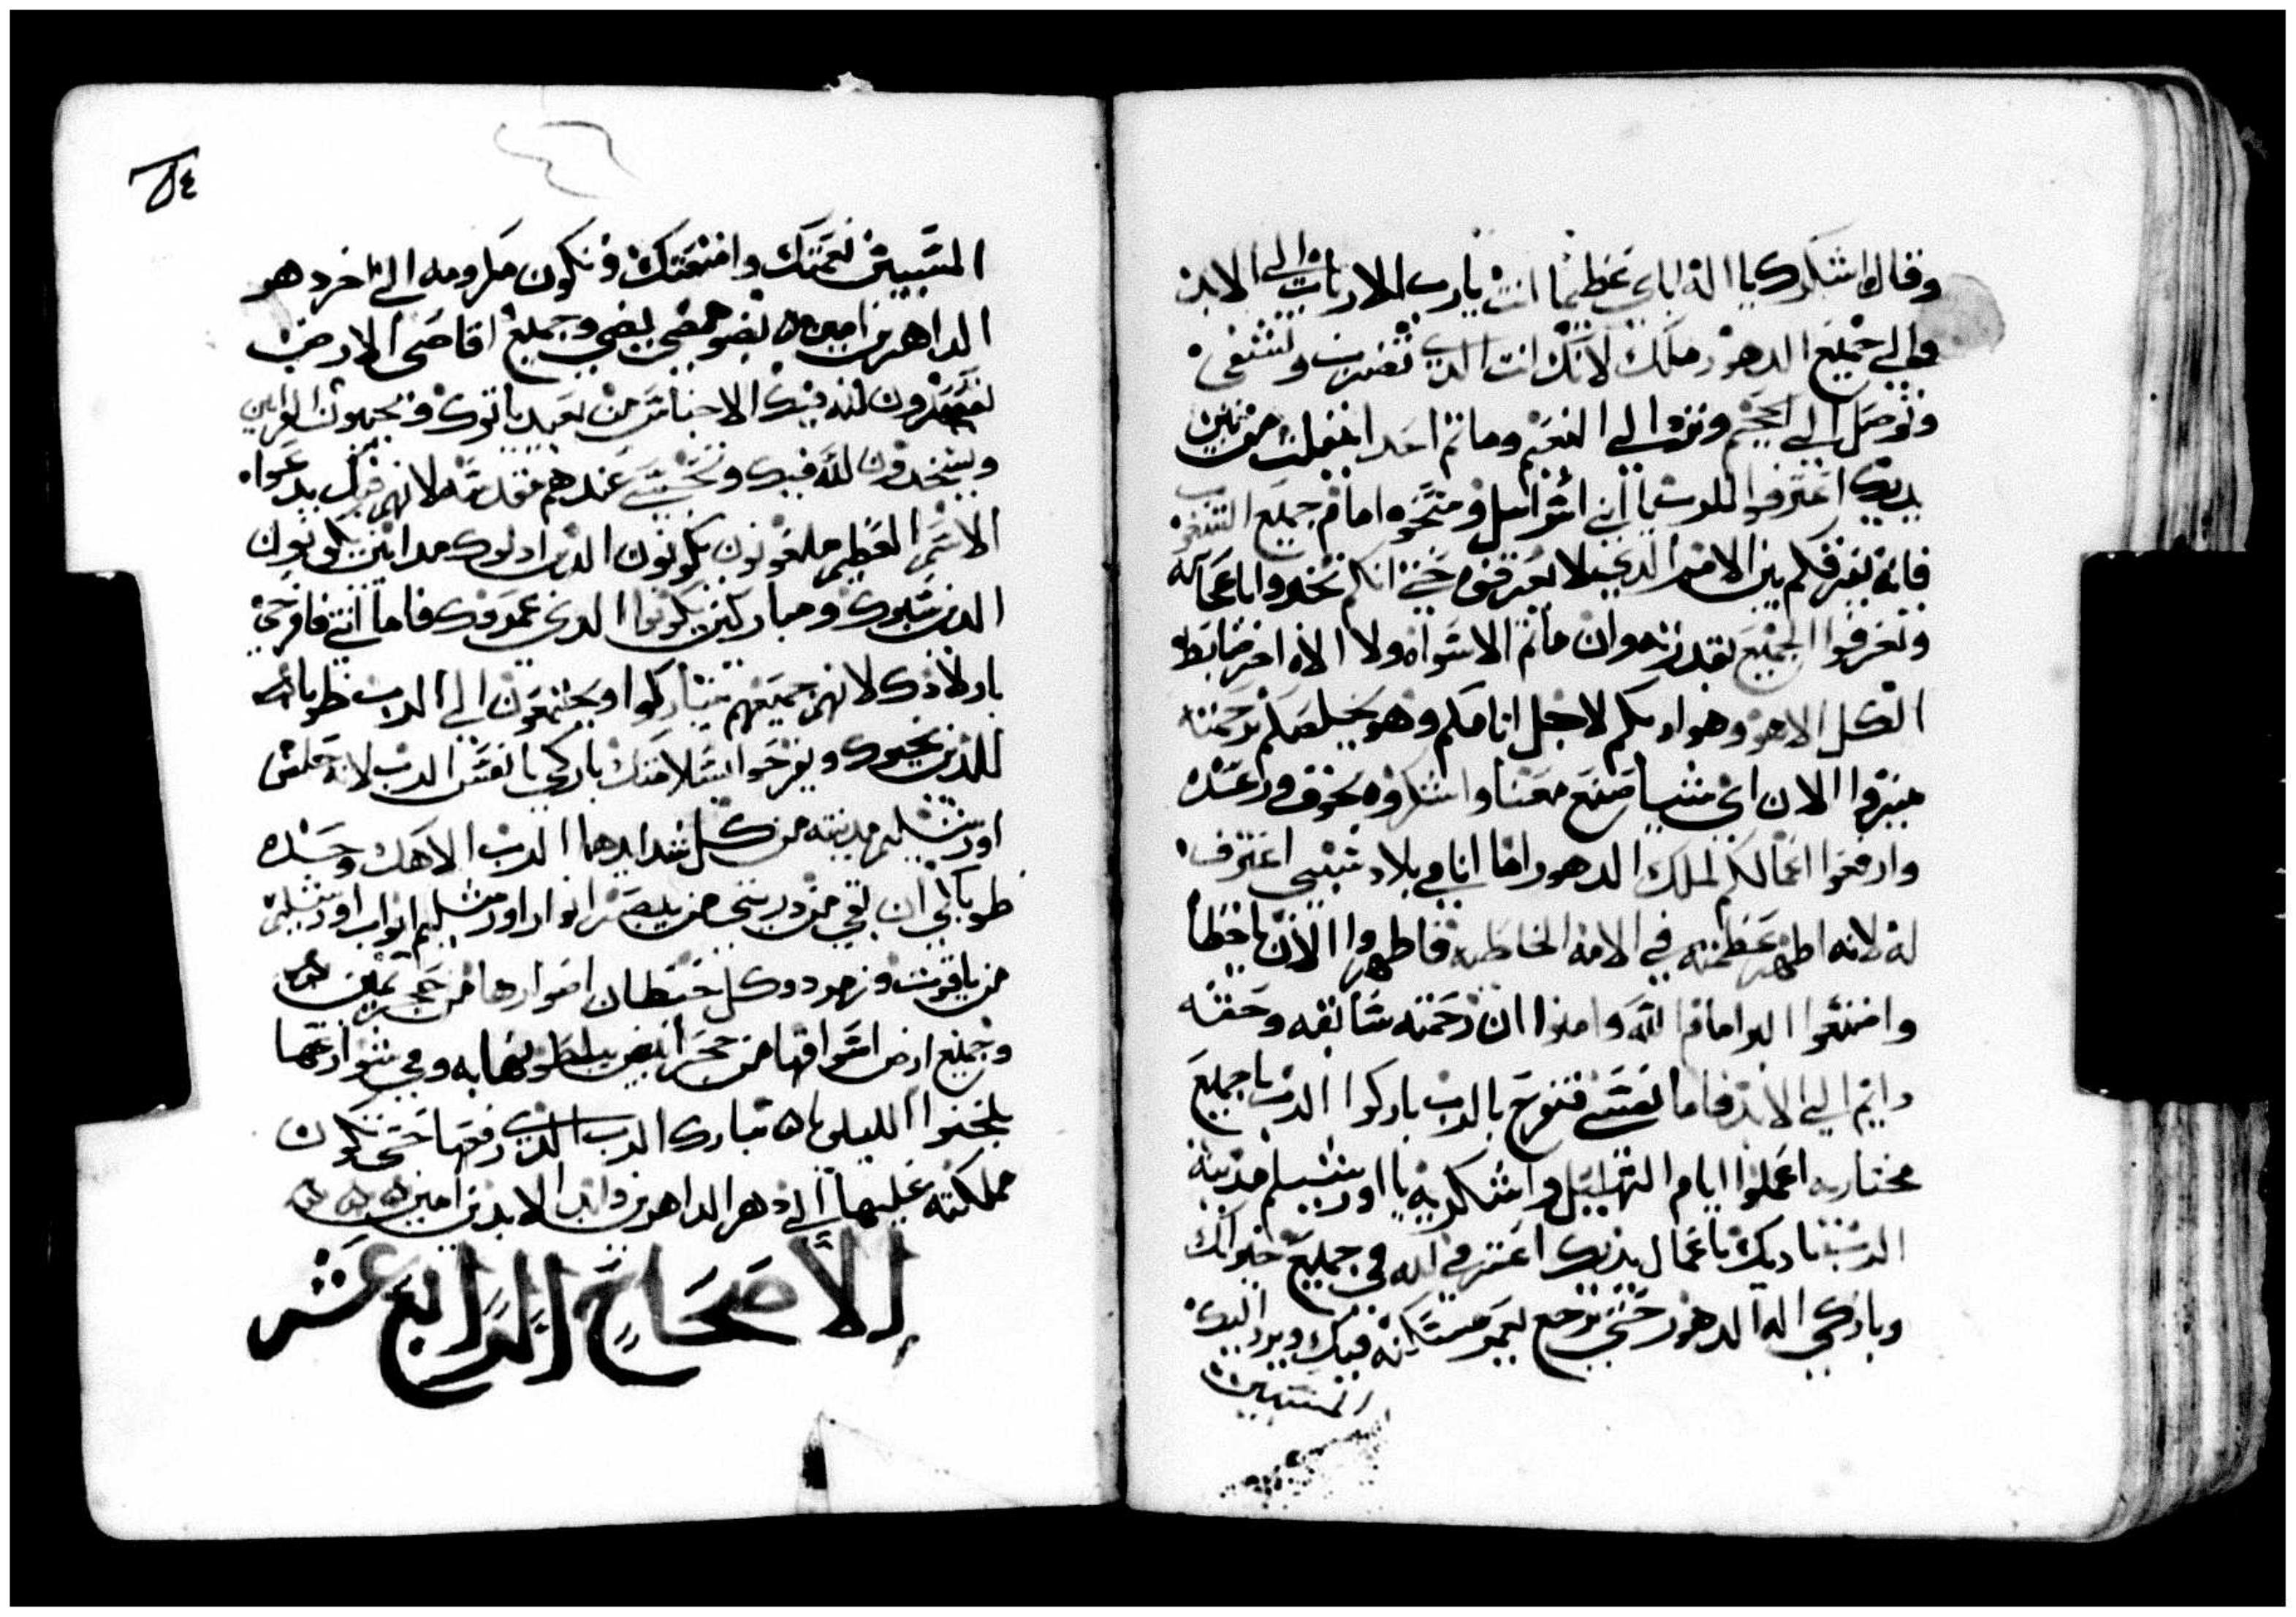 وقال اشكرك يا اله اباي عظيما انت يارب الارباب الي الابد
والي جميع الدهور ملكك لانك انت الدي تضرب وتشفي
وتوصل الي الجحيم وترد الي النعيم وما تم احد انفلت من بين
يديك اعترفوا للرب يا بني اسراييل ومتجوه امام جميع الشعوب
فانه بفرقكم بين الامم الدي لا يعرفوه حتي انكم تخبروا باعجابه
وتعرفوا الجميع بقدرته وان ماتم الا سواه ولا الاه اخر ضابط
الكل الا هو وهو ادبكم لاجل اتامكم وهو يخلصكم برحمته
ميزوا الان اي شيا صنع معنا واشكروه بخوف ورعده
وارفعوا اعمالكم لملك الدهور اما انا في بلاد سبيي اعترف
له لانه اظهر عظمته في الامه الخاطيه فاطهروا الان يا خطاه
واصنعوا البر امام الله وامنوا ان رحمته سابغه وحقه
دايم الي الابد فاما نفسي فتفرح بالرب باركوا الرب يا جميع
مختاريه اعملوا ايام التهليل واشكريه يا اورشليم مدينة
الرب ادبك باعمال يديك اعترفي لله في جميع خيراتك
وباركي اله الدهور حتي يرجع يعمر مسكنه فيك ويرد اليك
المسبيين
٥٤
المسبيين نعمتك وامنعتك وتكون مكرومه الي اخر دهر
الداهرين امين بضو مضي يضي وجميع اقاصي الارض
الاجناس من بعيد ياتوك ويجيبون القرابين
ويسجدون لله فيك وتحسبي عندهم مقدسه لانهم فيك يدعوا
الاسم العظيم ملعونون يكونون الدين ادلوك مدانين يكونون
الدين سبوك ومباركين يكونوا الدي عمروك فاما انتي فافرحي
باولادك لانهم جميعهم يتباركوا ويجتمعون الي الرب طوباه
للذين يحبوك ويفرحوا بسلامتك باركي يا نفسي الرب لانه خلص
اورشليم مدينته من كل شدايدها الرب الاهك وحده
طوباي ان بقي من دريتي من يبصر انوار اورشليم ابواب اورشليم
من ياقوت وزمرد وكل حيطان اسوارها من حجر تمين
وجميع ارض اسواقها من حجر ابيض بلطوها به وفي شوارعها
يلحنوا الليلويا تبارك الرب الدي رفعها حتي تكون
مملكته عليها الي دهر الداهرين وابد الابدين امين
الاصحاح الرابع عشر